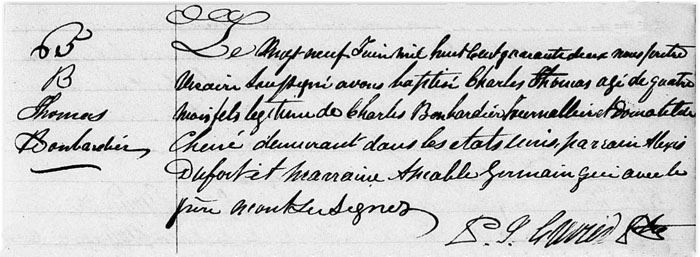 B
Thomas
Bonbardier
Le vingt neuf Juin mil huit cent quarante deux nous pretre
vicaire soussigné avons baptisé Charles Thomas agé de quatre
mois fils legitime de Charles Bonbardier Journallier et Domatilde
Chené demeurant dans les etats unis, parrain Alexis
Dufort et marraine Amable Germain qui avec le
père n'ont su signer